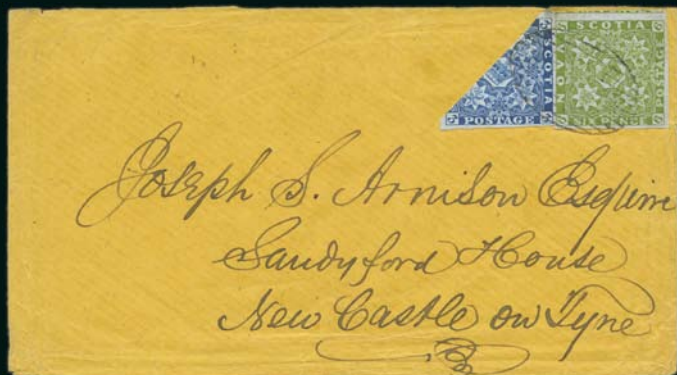 SCOTIA
SCOTIA
NOVA
POSTAGE
POSTAGE
SIX PENCE
Joseph S. Arnison Esquire
Sandyford House
New Castle on Tyne